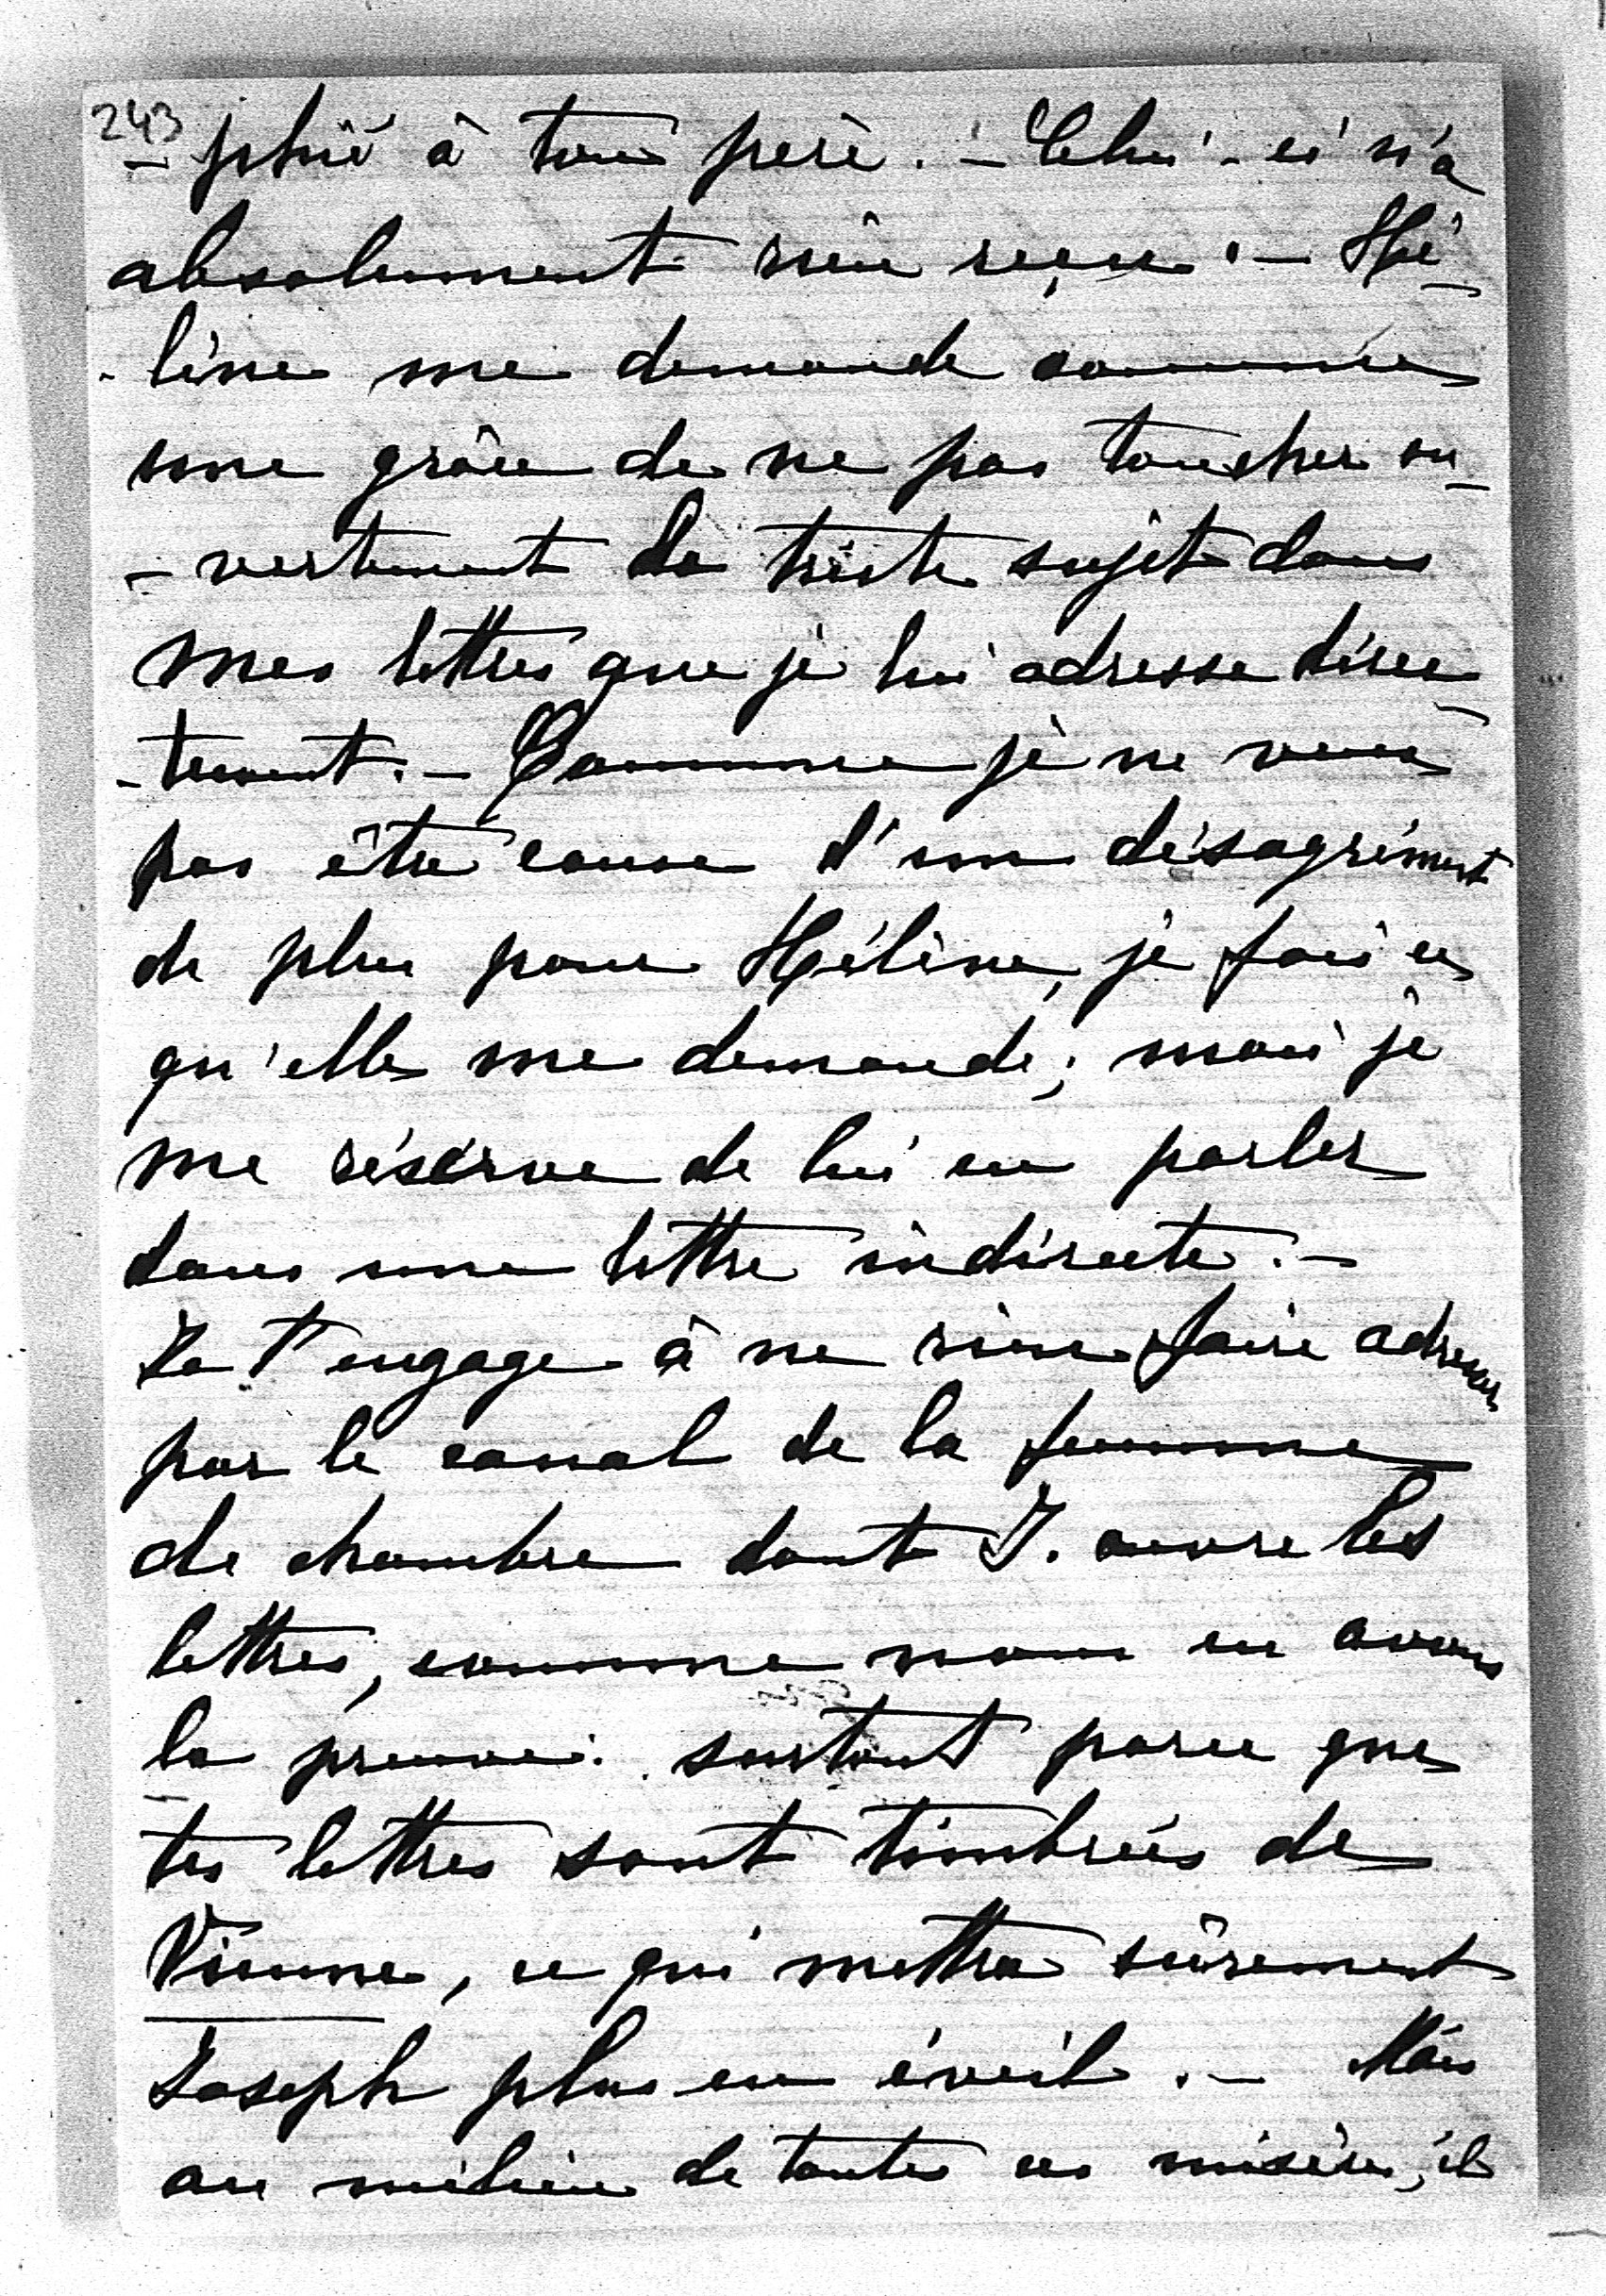 243
- phié à ton père. - Celui-ci n'a
absolument rien reçu. - Hé-
-lène me demande comme
une grâce de ne pas toucher ou-
-vertement le triste sujet dans
mes lettres que je lui adresse direc-
-tement. - Comme je ne veux
pas être cause d'un désagrément
de plus pour Hélène, je fais ce
qu'elle me demande; mais je
me réserve de lui en parler
dans une lettre indirecte. -
Je t'engage à ne rien faire adresser
par le canal de la femme
de chambre dont J. ouvre les
lettres, comme nous en avons
la preuve. surtout parce que
tes lettres sont timbrées de
Vienne, ce qui mettra sûrement
Joseph plus en éveil. - Mais
au milieu de toutes ces misères, il